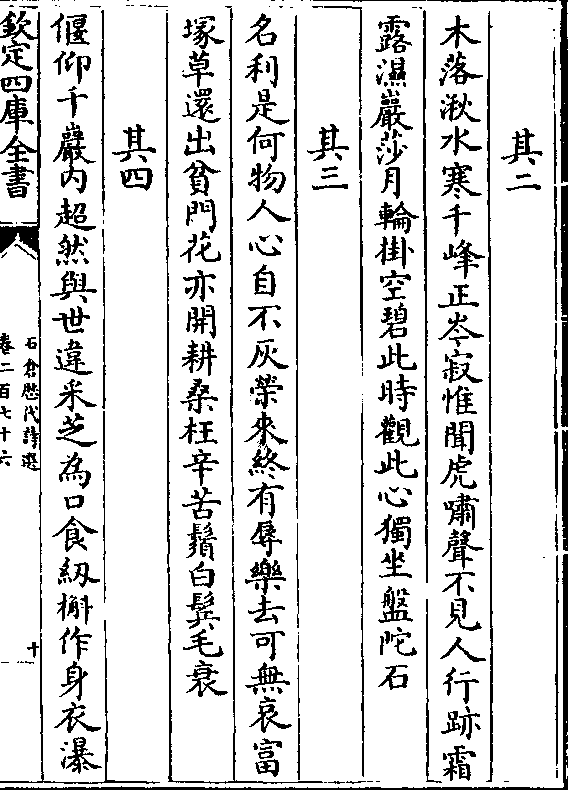 其二
木落湫水寒千峰正岑寂惟聞虎嘯聲不見人行跡霜
露濕巖莎月輪掛空碧此時觀此心獨坐盤陀石
其三
名利是何物人心自不灰榮來終有辱樂去可無哀富
塚草還出貧門花亦開耕桑枉辛苦鬚白鬂毛衰
其四
偃仰千巖内超然與世違采芝為口食紉槲作身衣瀑
欽定四庫全書
石倉歴代詩選
卷二百七十六
十